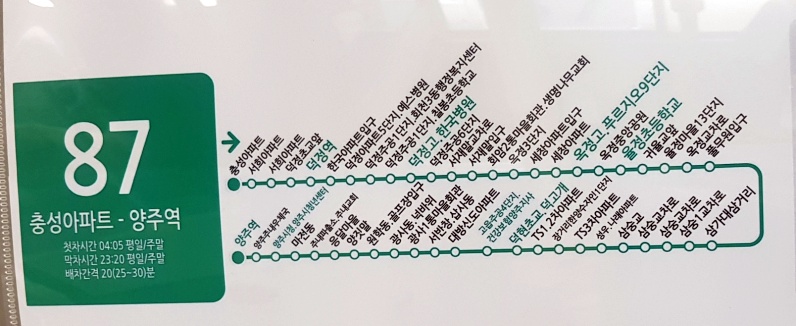 87
충성아파트 - 양주역
첫차시간 04:05 평일/주말
막차시간 23:20 평일/주말
배차간격 20(25~30)분
충성아파트
서희아파트
서희아파트
덕정초교앞
덕정역
한국아파트입구
덕정아파트5단지.예스병원
덕정주공1단지.회천3동행정복지센터
덕정주공1단지.칠봉초등학교
덕정고.한국병원
서재말교차로
서재말입구
희암2통마을회관.생명나무교회
옥정3단지
세창아파트입구
세창아파트
옥정고.푸르지오9단지
옥정중앙공원
율정초등학교
귀율오앞
율정마을13단지
옥정교차로
풀무원입구
삼가대삼거리
삼숭1교차로
삼숭교차로
삼숭교차로
삼숭교
성우.나래아파트
TS3차아파트
TS1.2차아파트
덕현초교.덕고개
고읍주공4단지.
대방신도아파트
서민청.삼사동
광사1통마을회관
광사동.넉바위
원학동.골프장입구
양짓말
응달마을
주내파출소.주내교회
마전동
양주시청.양주시청년센터
양주주내우체국
양주역